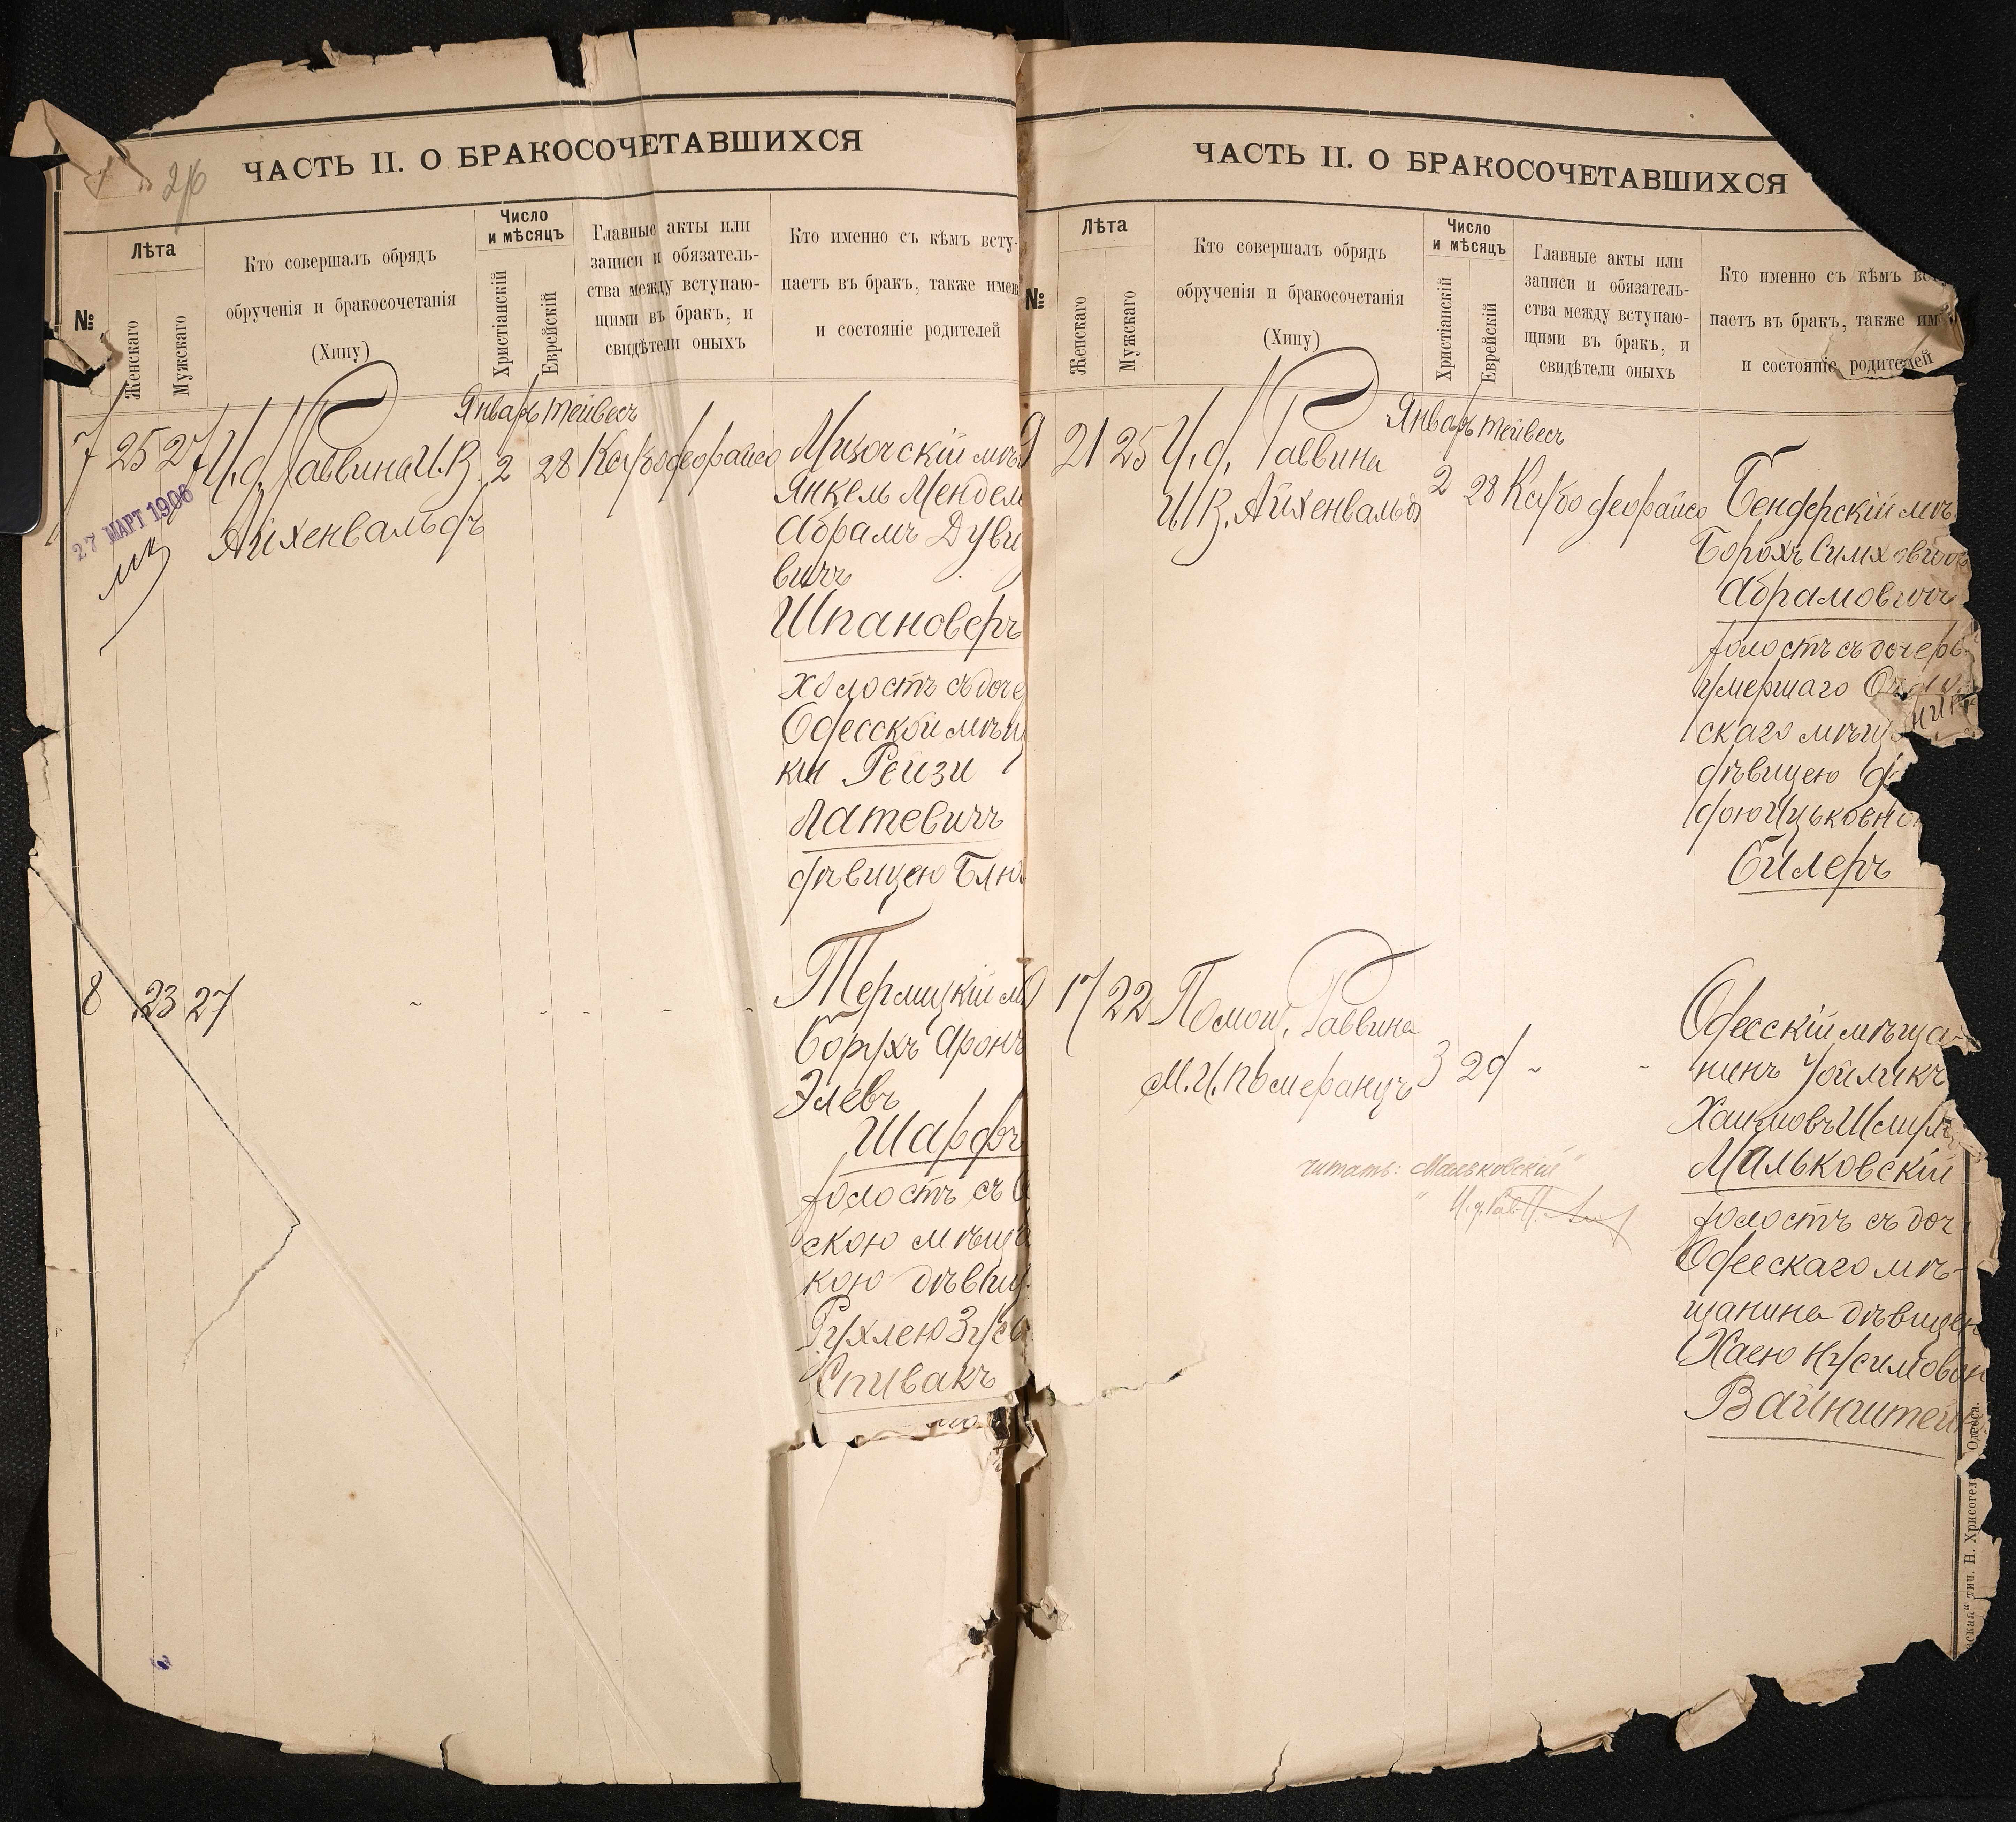 ЧАСТЬ II. О БРАКОСОЧЕТАВШИХСЯ
26
№
Лѣта
Женскаго
Мужскаго
Кто совершалъ обрядъ
обрученія и бракосочетанія
(Хипу)
Число
и мѣсяцъ
Христіанскій
Еврейскій
Главные акты или
записи и обязатель-
ства между вступаю-
щими въ бракъ, и
свидѣтели оныхъ
Кто именно съ кѣмъ всту-
паетъ въ бракъ, также имен
и состояніе родителей
Январь тейвесъ
7 25 27 И.д. Раввина И.В. 2 28
Айхенвальдъ
27 МАРТ 1906
Мизочскій мѣщ
Янкель Мендель
Абрамъ Дуви
вичъ
Шпановеръ
холостъ съ доче
Одесской мѣщ
ки Рейзи
Латевичъ
дѣвицею Блю
8 23 27
Борухъ Аронъ
Элевъ
Шарфъ
холостъ съ О
скою мѣща
кою дѣвиц
Рухлею Зус
Спивакъ
ЧАСТЬ II. О БРАКОСОЧЕТАВШИХСЯ
№
Лѣта
Женскаго
Мужскаго
Кто совершалъ обрядъ
обрученія и бракосочетанія
(Хипу)
Число
и мѣсяцъ
Христіанскій
Еврейскій
Главные акты или
записи и обязатель-
ства между вступаю-
щими въ бракъ, и
свидѣтели оныхъ
Кто именно съ кѣмъ вс
паетъ въ бракъ, также им
и состояніе родителей
Январь тейвесъ
9 21 25 И.д. Раввина 2 28
И.В. Айхенвальдъ
Бендерскій мѣщ
Борохъ Симховичъ
Абрамовичъ
холостъ съ дочерь
умершаго
скаго мѣщ
дѣвицею
дою Ицьковно
Билеръ
17 22 Помощ. Раввина
М.И. Померанцъ 3 29
Одесскій мѣща-
нинъ Уойликъ
Хаимовъ Шмуль
Мальковскій
холостъ съ доч
Одесскаго мѣ-
щанина дѣвицею
Хаею Нусимовн
Вайнштейн
читать: "Мальковскій"
тип. Н. Хрисогел
Одесса.